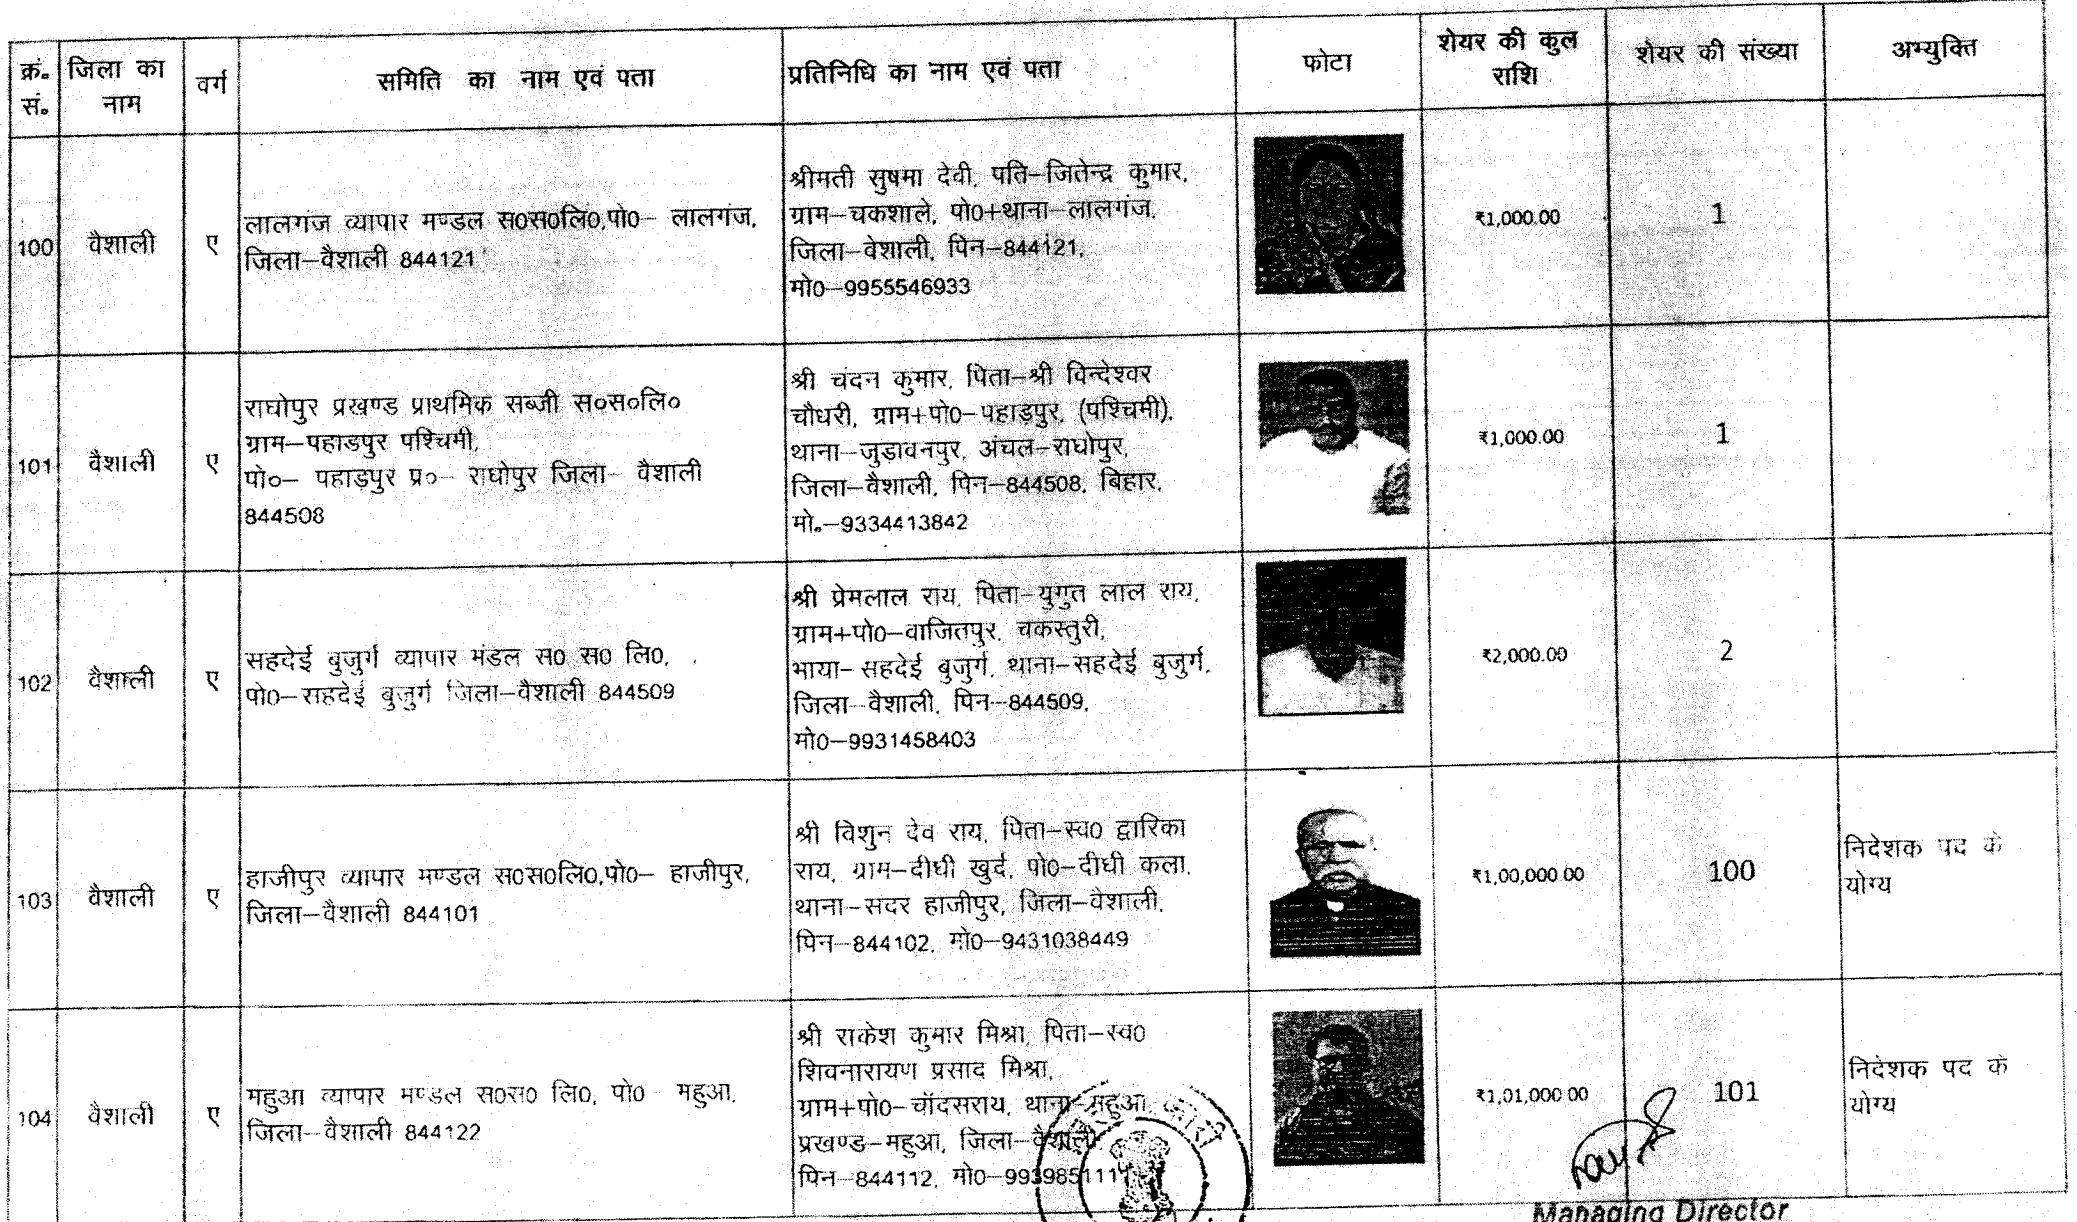 क्रं. सं. जिला का नाम वर्ग समिति का नाम एवं पता प्रतिनिधि का नाम एवं पता फोटा शेयर की कुल राशि शेयर की संख्या अभ्युक्ति
100 वैशाली ए
लालगंज व्यापार मण्डल स0स0लि0,पो0– लालगंज,
जिला–वैशाली 844121
श्रीमती सुषमा देवी, पति–जितेन्द्र कुमार,
ग्राम–चकशाले, पो0+थाना–लालगंज,
जिला–वेशाली, पिन–844121,
मो0–9955546933
₹1,000.00 1
101 वैशाली ए
राघोपुर प्रखण्ड प्राथमिक सब्जी स०स०लि०
ग्राम–पहाडपुर पश्चिमी,
पो०– पहाड़पुर प्र०– राघोपुर जिला– वैशाली
844508
श्री चंदन कुमार, पिता–श्री विन्देश्वर
चौधरी, ग्राम+पो0–पहाड़पुर, (पश्चिमी),
थाना–जुड़ावनपुर, अंचल–राघोपुर,
जिला–वैशाली, पिन–844508, बिहार,
मो.–9334413842
₹1,000.00 1
102 वैशाली ए
सहदेई बुजुर्ग व्यापार मंडल स0 स0 लि0,
पो0–सहदेई बुजुर्ग जिला–वैशाली 844509
श्री प्रेमलाल राय, पिता–युगुत लाल राय,
ग्राम+पो0–वाजितपुर, चकस्तुरी,
भाया–सहदेई बुजुर्ग, थाना–सहदेई बुजुर्ग,
जिला–वैशाली, पिन–844509,
मो0–9931458403
₹2,000.00 2
103 वैशाली ए
हाजीपुर व्यापार मण्डल स0स0लि0,पो0– हाजीपुर,
जिला–वैशाली 844101
श्री विशुन देव राय, पिता–स्व0 द्वारिका
राय, ग्राम–दीधी खुर्द, पो0–दीधी कला,
थाना–सदर हाजीपुर, जिला–वैशाली,
पिन–844102, मो0–9431038449
₹1,00,000.00 100
निदेशक पद के
योग्य
104 वैशाली ए
महुआ व्यापार मण्डल स0स0 लि0, पो0– महुआ,
जिला–वैशाली 844122
श्री राकेश कुमार मिश्रा, पिता–स्व0
शिवनारायण प्रसाद मिश्रा,
ग्राम+पो0–चाँदसराय, थाना–महुआ,
प्रखण्ड–महुआ, जिला–वैशाली,
पिन–844112, मो0–
₹1,01,000.00 101
निदेशक पद के
योग्य
Managing Director